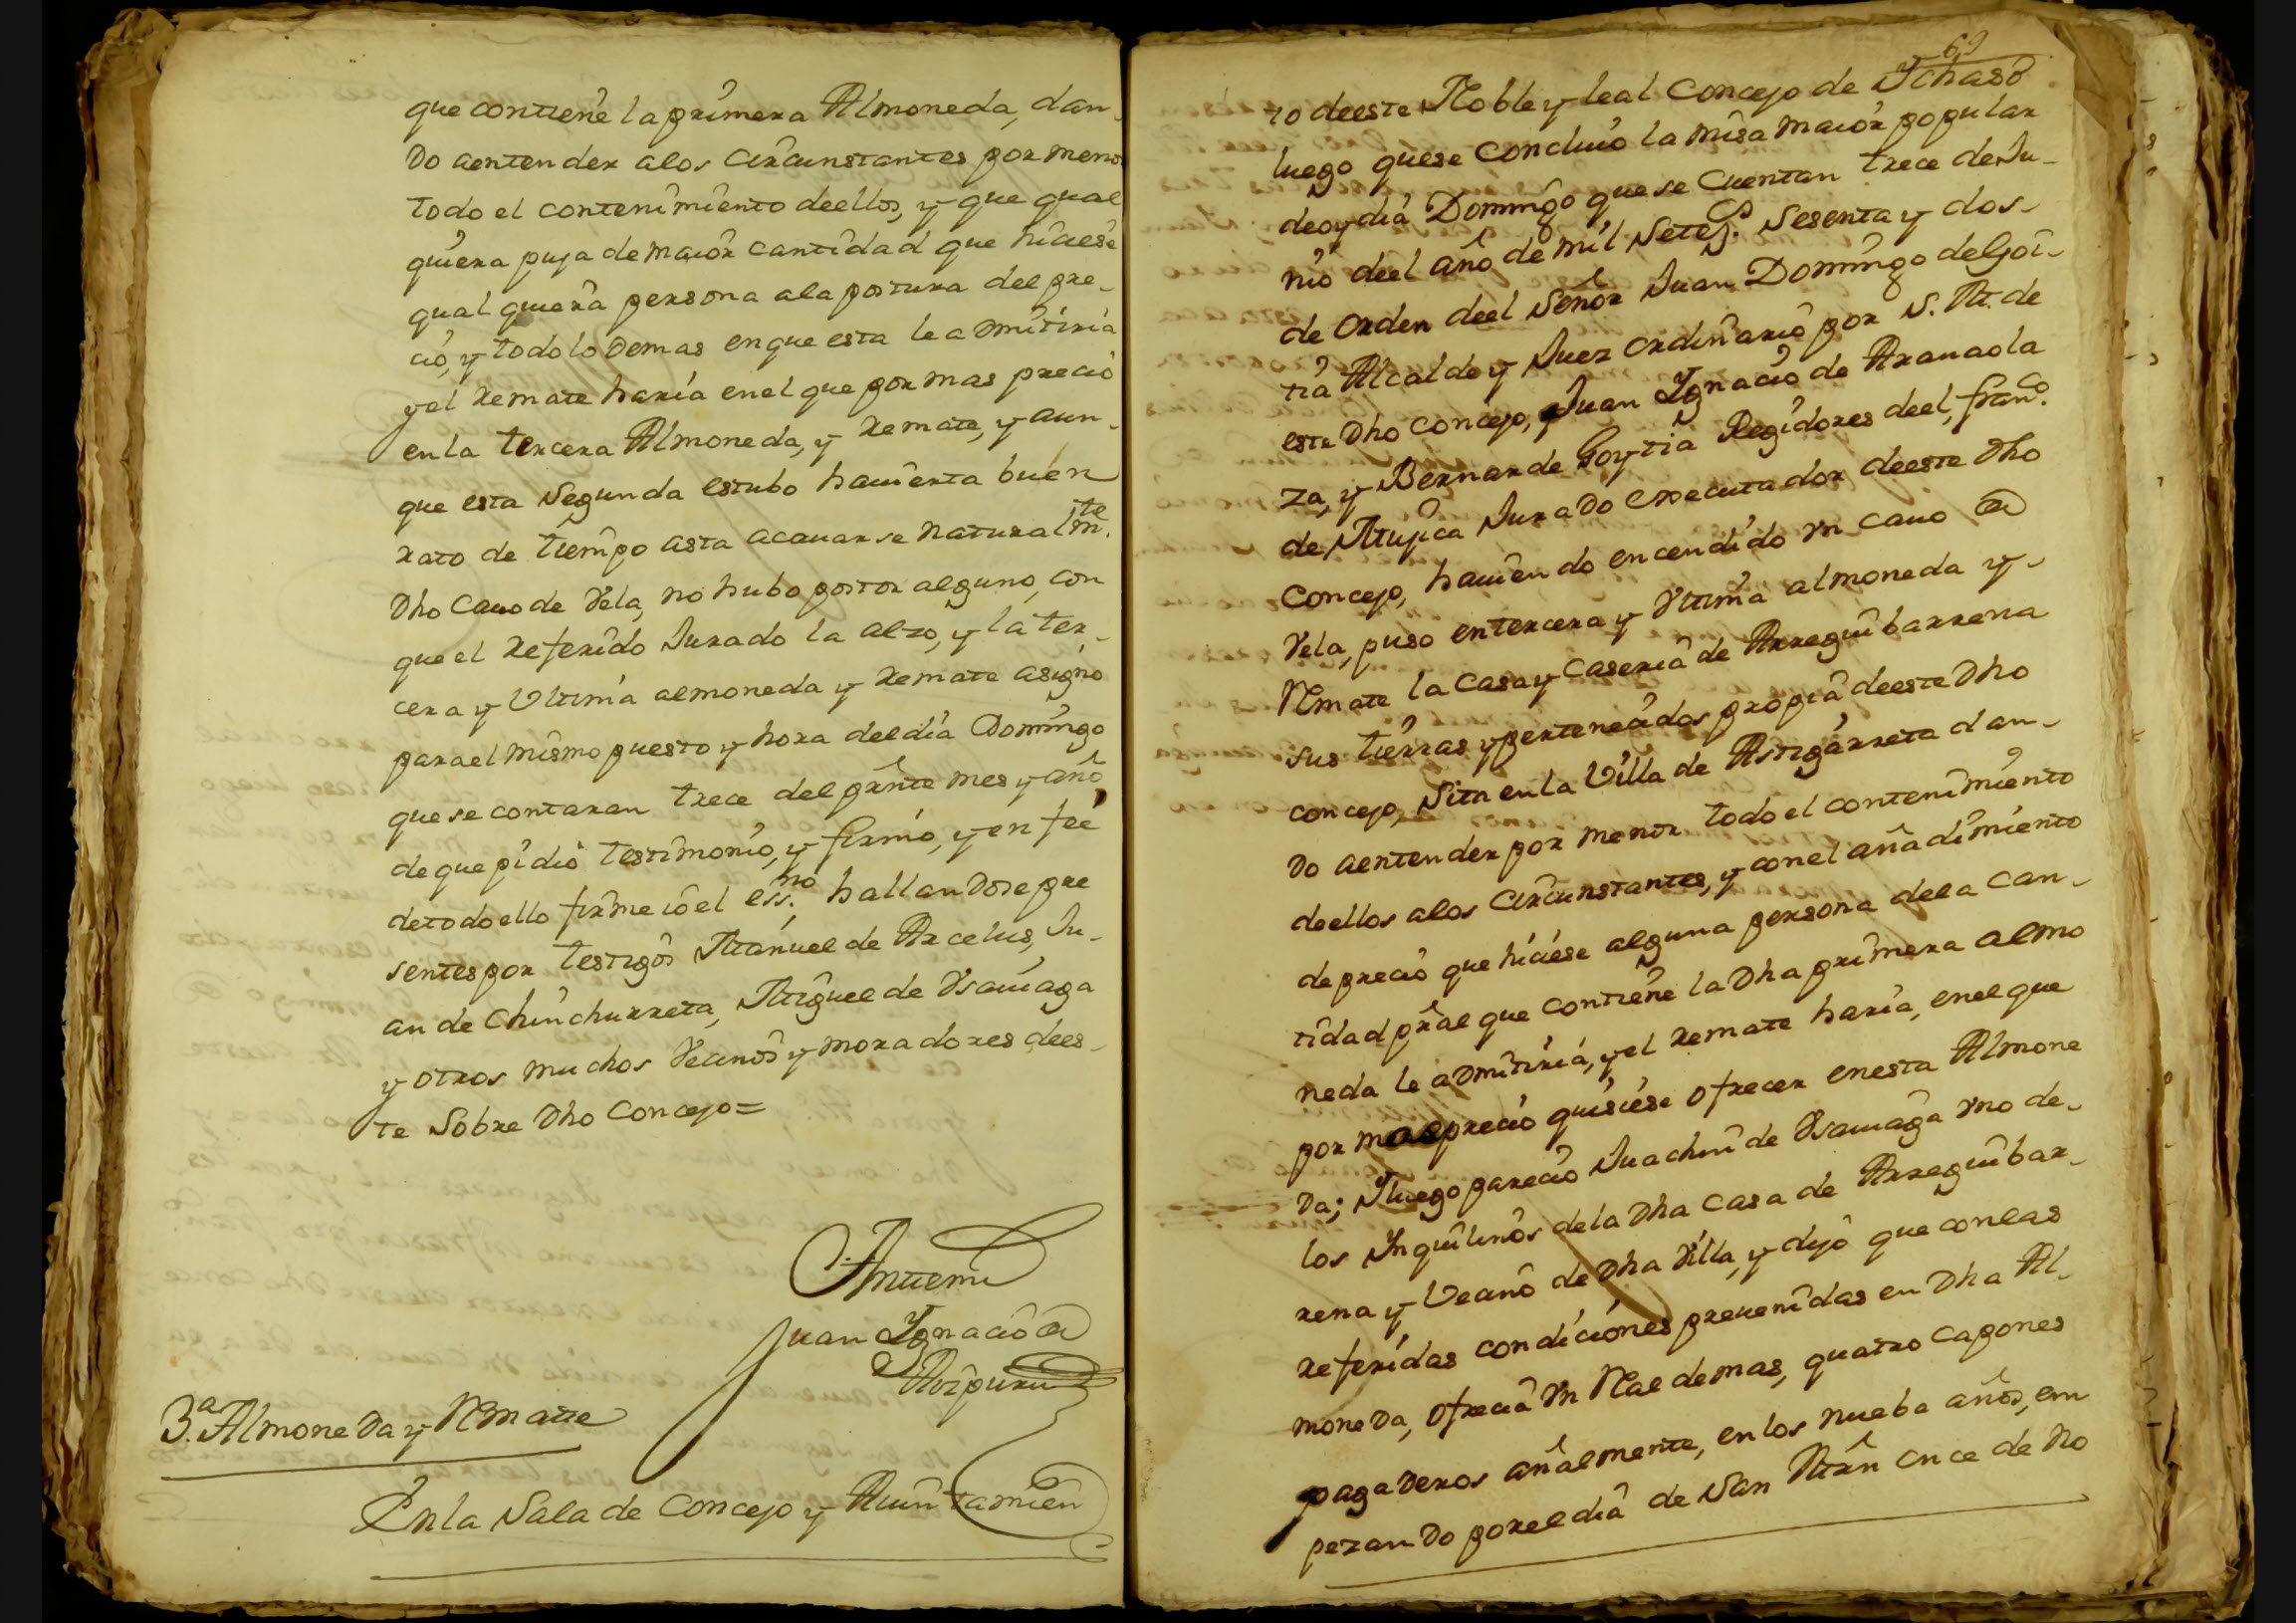 que contiene la primera Almoneda, dan-
do aentender alos Circunstantes por menor
todo el contenimiento deellos, y que qual
quiera puja de maior cantidad que hiciese
qualquiera persona ala postura del pre-
cio, y todo lo demas en que esta le admitiria
y el remate haria enel que por mas precio
en la tercera Almoneda, y remate, y aun-
que esta Segunda estubo hauierta buen
rato de tiempo asta acauarse naturalmte.
Dho Cauo de Vela, no hubo postor alguno, con
que el referido Jurado la alzo, y la ter-
cera y Ultima almoneda y remate asigno
para el mismo puesto y hora del dia Domingo
que se contaran trece del prnte mes y año,
de que pidio testimonio, y firmo, y en fee
de todo ello firme io el essno. hallandose pre
sentes por testigos Manuel de Arcelus, Ju-
an de Chinchurreta, Miguel de Vsauiaga
y otros muchos Vecinos y moradores dees-
te Sobre Dho Concejo =
Antemi
Juan Ignacio de
Aizpuru
3.a Almoneda y Remate
En la Sala de Concejo y Aiuntamien
69
to deeste Noble y leal Concejo de Ichaso
luego que se concluio la misa maior popular
de oy dia Domingo que se Cuentan trece de Ju-
nio deel año de mil Setecs. Sesenta y dos-
de orden deel Señor Juan Domingo de Goi-
tia Alcalde y Juez ordinario por S. M. de
este Dho Concejo, Juan Ignacio de Aranaola
za, y Bernar de Goytia Regidores deel, franco.
de Mujica Jurado executador deeste Dho
Concejo, hauiendo encendido vn cauo de
Vela, puso en tercera y Vltima almoneda y-
Remate la Casa y Caseria de Arreguibarrena
sus tierras y pertenecidos propia deeste Dho
concejo, Sita en la Villa de Astigarreta dan-
do aentender por menor todo el contenimiento
deellos alos Circunstantes, y con el añadimiento
de precio que hiciese alguna persona dela can-
tidad pral que contiene la Dha primera almo
neda le admitiria, y el remate haria, enel que
por mas precio quisiese ofrecer en esta Almone
da; Y luego parecio Juachin de Vsauiaga vno de-
los Inquilinos dela Dha Casa de Arreguibar-
rena y Vecino de Dha Villa, y dijo que con las
referidas condiciones preuenidas en Dha Al-
moneda, ofrecia vn Real demas, quatro capones
pagaderos añalmente, en los nueba años, em
pezando por el dia de San Mrn once de No